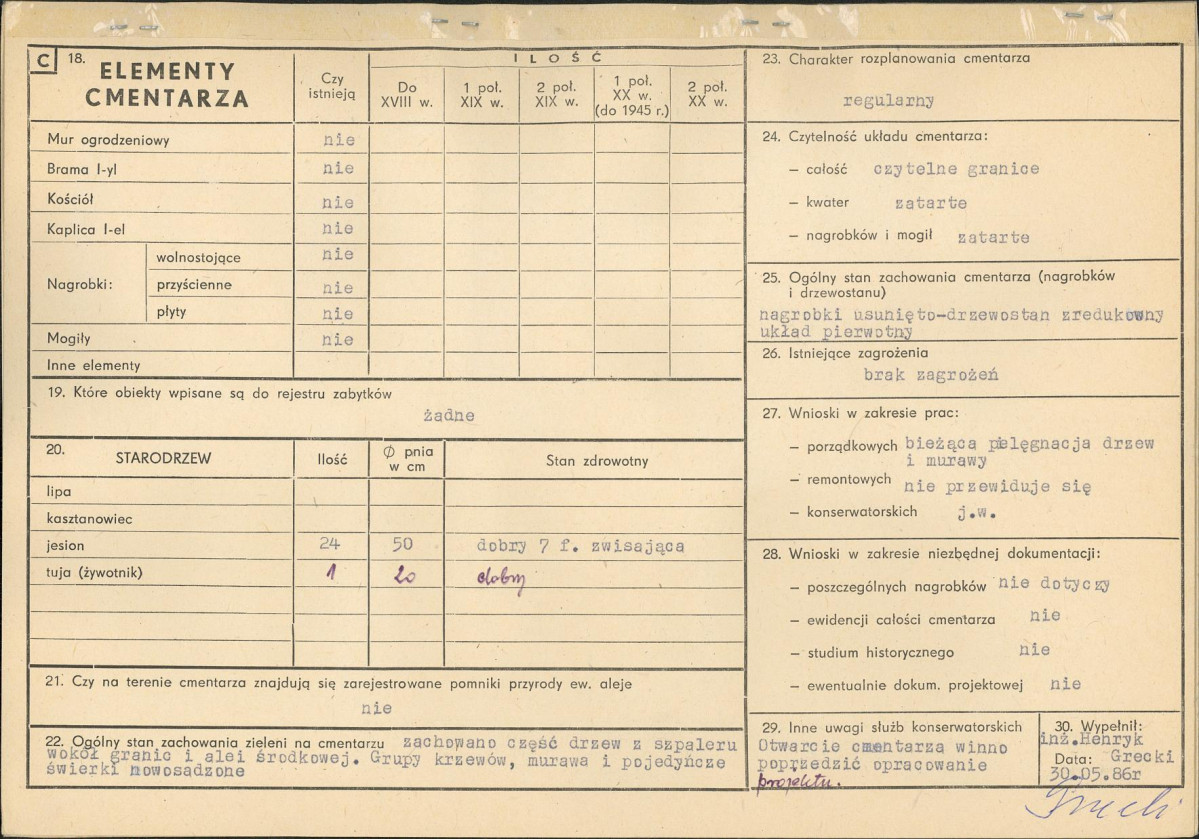 C 18. ELEMENTY CMENTARZA
Czy istnieją
ILOŚĆ
Do XVIII w.
1 poł. XIX w.
2 poł. XIX w.
1 poł. XX w. (do 1945 r.)
2 poł. XX w.
Mur ogrodzeniowy nie
Brama I-yl nie
Kościół nie
Kaplica I-el nie
Nagrobki:
wolnostojące nie
przyścienne nie
płyty nie
Mogiły nie
Inne elementy
19. Które obiekty wpisane są do rejestru zabytków
żadne
20. STARODRZEW Ilość Ø pnia w cm Stan zdrowotny
lipa
kasztanowiec
jesion 24 50 dobry 7 f. zwisająca
tuja (żywotnik) 1 20 dobry
21. Czy na terenie cmentarza znajdują się zarejestrowane pomniki przyrody ew. aleje
nie
22. Ogólny stan zachowania zieleni na cmentarzu zachowano część drzew z szpaleru
wokół granic i alei środkowej. Grupy krzewów, murawa i pojedyńcze
świerki nowosadzone
23. Charakter rozplanowania cmentarza
regularny
24. Czytelność układu cmentarza:
– całość czytelne granice
– kwater zatarte
– nagrobków i mogił zatarte
25. Ogólny stan zachowania cmentarza (nagrobków
i drzewostanu)
nagrobki usunięto-drzewostan zredukowny
układ pierwotny
26. Istniejące zagrożenia
brak zagrożeń
27. Wnioski w zakresie prac:
– porządkowych bieżąca pielęgnacja drzew
i murawy
– remontowych nie przewiduje się
– konserwatorskich j.w.
28. Wnioski w zakresie niezbędnej dokumentacji:
– poszczególnych nagrobków nie dotyczy
– ewidencji całości cmentarza nie
– studium historycznego nie
– ewentualnie dokum. projektowej nie
29. Inne uwagi służb konserwatorskich
Otwarcie cmentarza winno
poprzedzić opracowanie
projektu.
30. Wypełnił:
inż.Henryk
Grecki
Data:
30.05.86r
Grecki